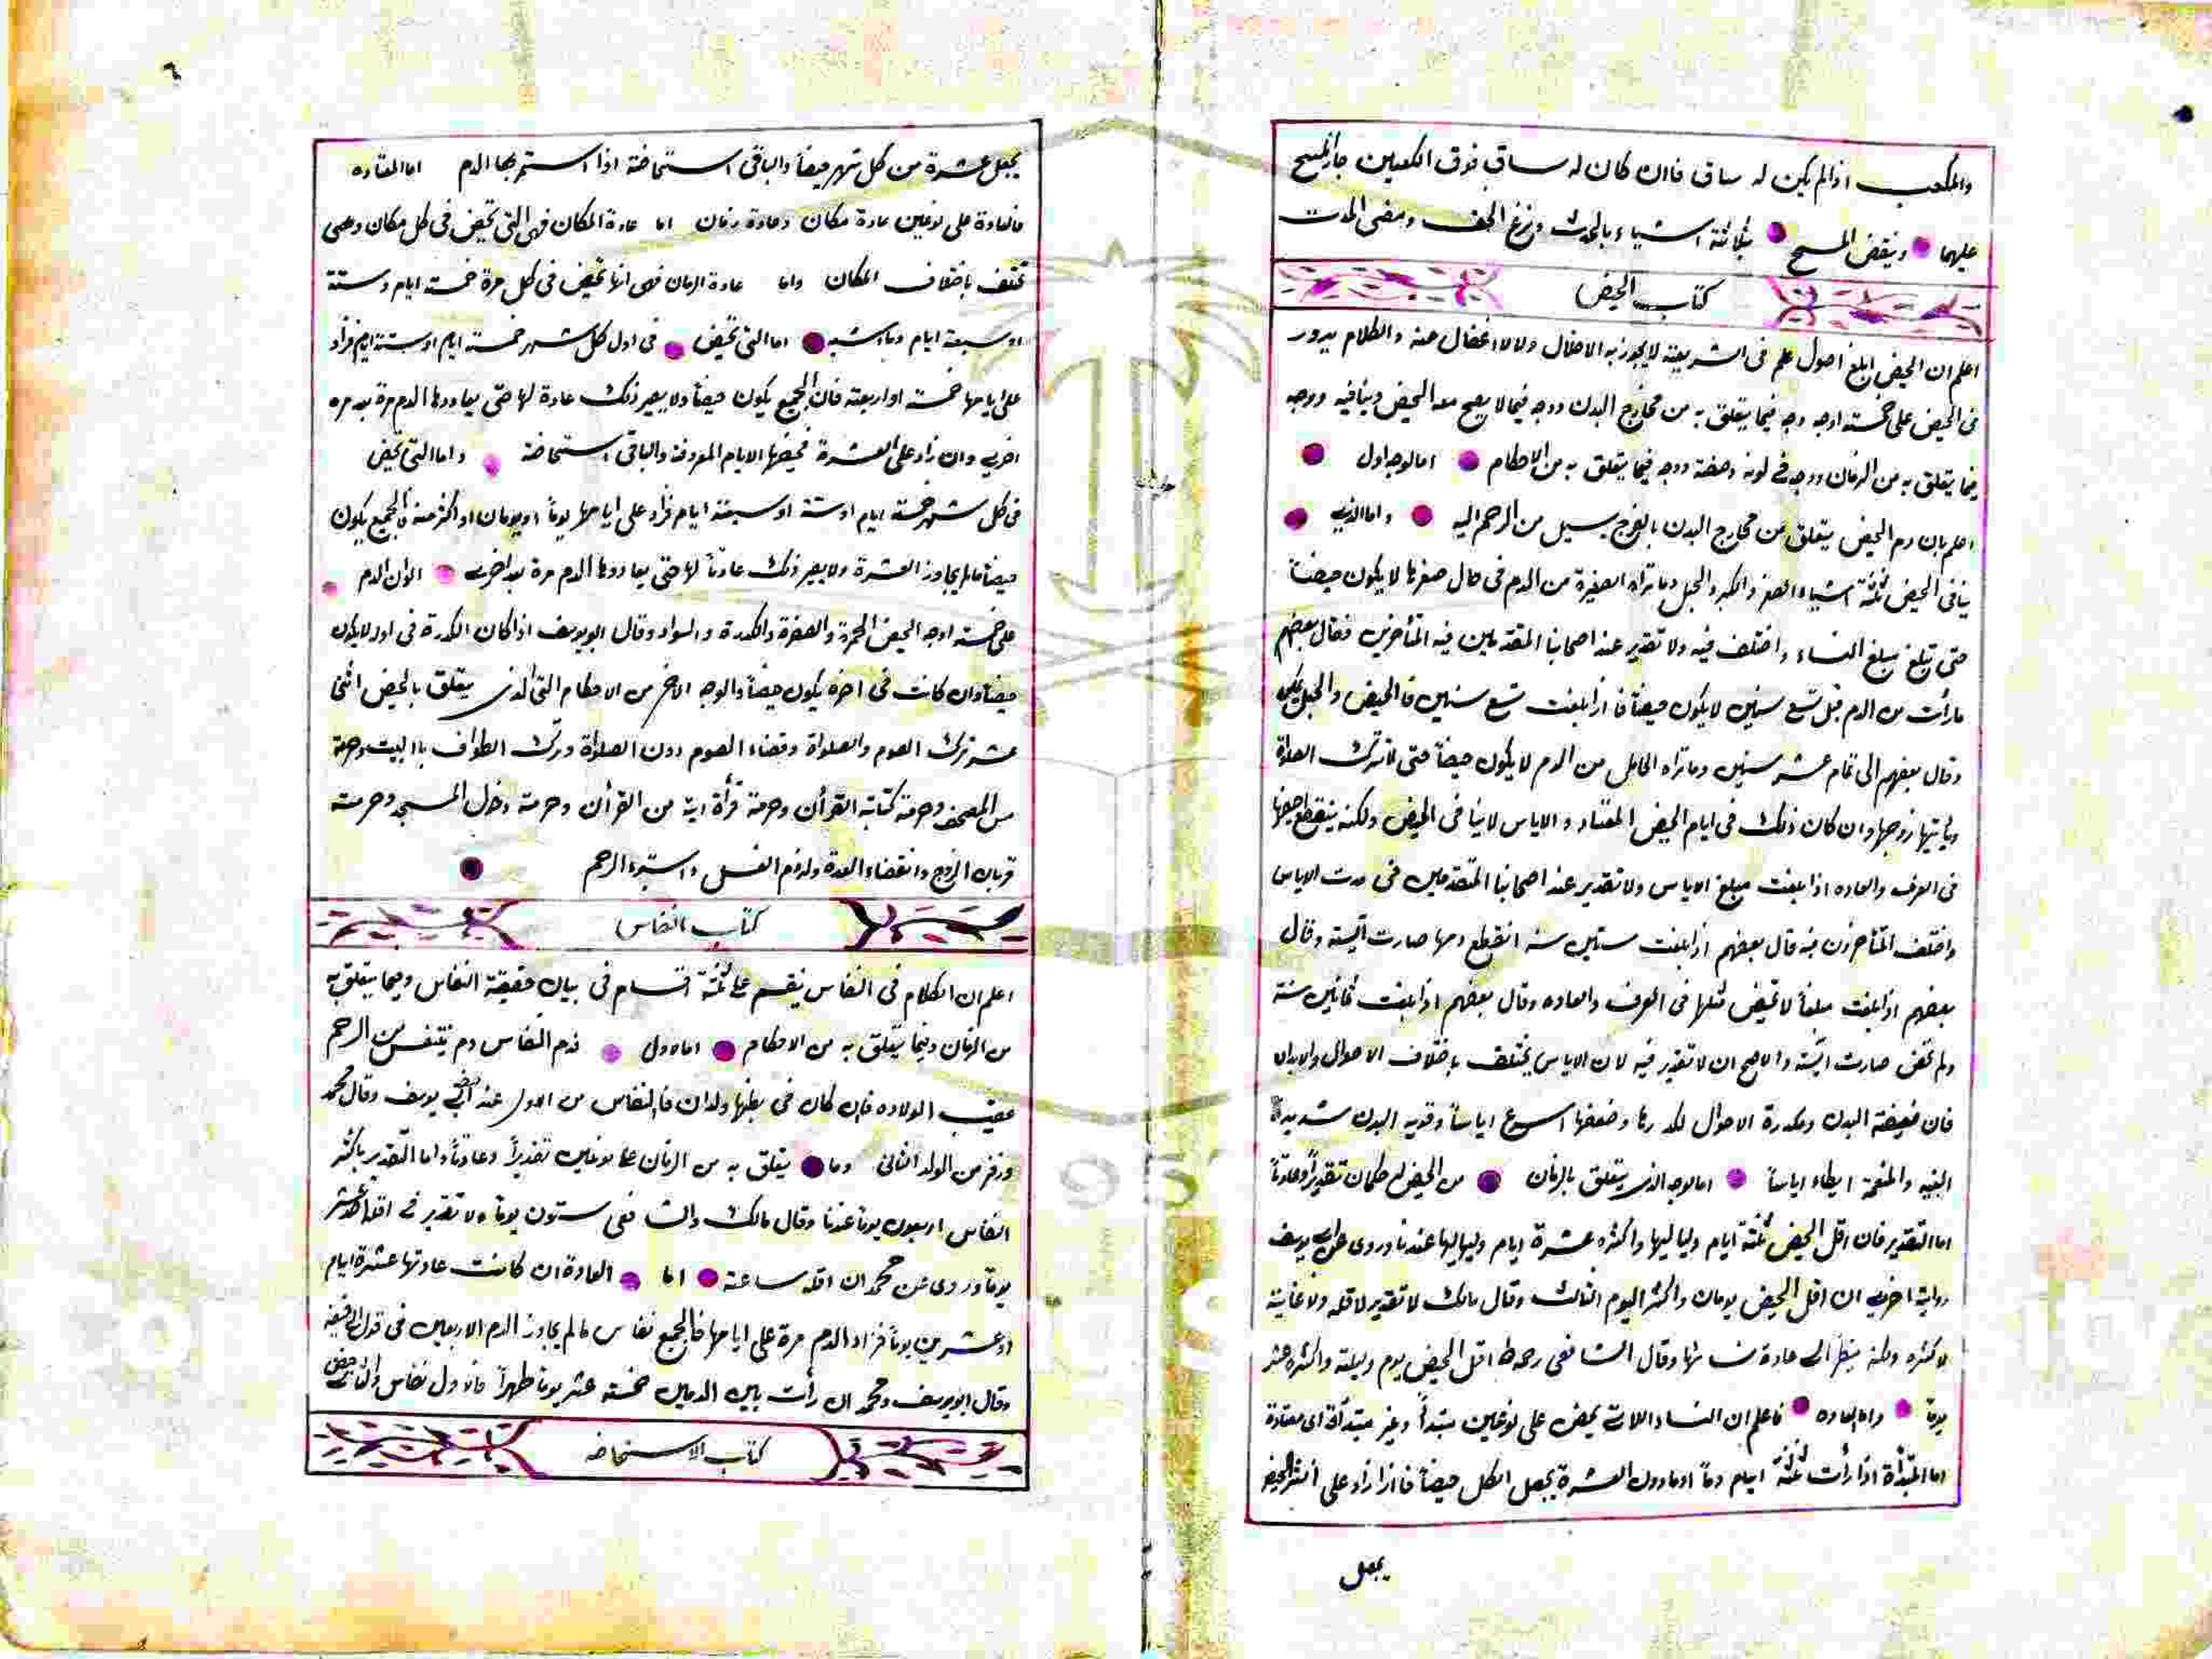 والمكعب اذا لم يكن له ساق فاان كان له ساق فوق الكعبين جاز المسح
عليهما وينقض المسح بثلاثة اشياء بالحدث ونزع الخف ومضى المدت
كتاب الحيض
اعلم ان الحيض ابلغ اصول علم فى الشريعة لا يجوز به الاخلال ولا الاغفال عنه والكلام يدور
فى الحيض على خمسة اوجه وجه فيما يتعلق به من مخارج البدن ووجه فيما لا يصح معه الحيض وينافيه ووجه
فيما يتعلق به من الزمان ووجه فى لونه وصفته ووجه فيما يتعلق به من الاحكام اما الوجه اول
اعلم بان دم الحيض يتعلق من مخارج البدن بالفرج يسيل من الرحم اليه واما الذى
ينافى الحيض ثلثة اشياء الصغر والكبر والحبل وما تراه الصغيرة من الدم فى حال صغرها لا يكون حيضاً
حتى تبلغ مبلغ النساء واختلف فيه ولا تقدير عند اصحابنا المتقدمين فيه المتأخرين فقال بعضهم
مارأت من الدم قبل تسع سنين لا يكون حيضاً فاذا بلغت تسع سنين فالحيض والحبل يمكن
وقال بعضهم الى تمام عشر سنين وما تراه الحامل من الدم لا يكون حيضاً حتى لا تترك الصلاة
ويأتيها زوجها وان كان ذلك فى ايام الحيض المعتاد والاياس لا ينافى الحيض ولكنه ينقطع حيضها
فى العرف والعاده اذا بلغت مبلغ الاياس ولا تقدير عند اصحابنا المتقدمين فى مدت الاياس
واختلف المتأخرون فيه قال بعضهم اذا بلغت ستين سنه انقطع دمها صارت آيسة وقال
بعضهم اذا بلغت مبلغاً لا تحيض مثلها فى العرف والعاده وقال بعضهم اذا بلغت ثمانين سنة
ولم تحض صارت ايسة والاصح ان لا تقدير فيه لان الاياس يختلف باختلاف الاحوال والابدان
فان ضعيفة البدن ومكدرة الاحوال لكدرها وضعفها اسرع اياساً وقوية البدن شديدة
البنيه والمنعمة ابطاء اياساً اما الوجه الذى يتعلق بالزمان من الحيض له حكمان تقديراً وعادتاً
اما التقدير فان اقل الحيض ثلثة ايام ولياليها واكثره عشرة ايام ولياليها عندنا وروى عن ابى يوسف
رواية اخرى ان اقل الحيض يومان واكثر اليوم الثالث وقال مالك لا تقدير لاقله ولا غاية
لاكثره ولكنه ينظر الى عادة نسائها وقال الشافعى رحمه الله اقل الحيض يوم وليلة واكثره خمسة عشر
يوماً واما العاده فاعلم ان النساء اللات يحض على نوعين مبتدأ وغير مبتدأة اى معتادة
اما المبتدأة اذا رأت ثلثة ايام دماً او مادون العشرة يجعل الكل حيضاً فاذا زاد على اكثر الحيض
يجعل
٦
يجعل عشرة من كل شهر حيضاً والباقى استحاضة اذا استمر بها الدم اما المعتاده
فالعادة على نوعين عادة مكان وعادة زمان اما عادة المكان فهى التى تحيض فى كل مكان وهى
تختلف باختلاف المكان واما عادة الزمان فهى انها تحيض فى كل مرة خمسة ايام وستة
او سبعة ايام وما اشبه اما التى تحيض فى اول كل شهر خمسة ايام او ستة ايام فزاد
على ايامها خمسة او اربعة فان الجميع يكون حيضاً ولا يصير ذلك عادة لها حتى يعاودها الدم مرة بعد مره
اخرى وان زاد على العشرة فحيضها الايام المعروفة والباقى استحاضة واما التى تحيض
فى كل شهر خمسة ايام او ستة او سبعة ايام فزاد على ايامها يوماً او يومان او اكثر منه فالجميع يكون
حيضاً مالم يجاوز العشرة ولا يصير ذلك عادتاً لها حتى يعاودها الدم مرة بعد اخرى الوان الدم
على خمسة اوجه الحيض الحمرة والصفرة والكدرة والسواد وقال ابو يوسف اذا كان الكدرة فى اول لا يكون
حيضاً وان كانت فى اخره يكون حيضاً والوجه الاخر من الاحكام التى الذى يتعلق بالحيض اثنى
عشر ترك الصوم والصلواة وقضاء الصوم دون الصلواة وترك الطواف باالبيت وحرمة
مس المصحف وحرمة كتابة القرأن وحرمة قرأة اية من القرأن وحرمة دخول المسجد وحرمة
قربان الزوج وانقضاء العدة ولزوم الغسل واستبراء الرحم
كتاب النفاس
اعلم ان الكلام فى النفاس ينقسم على ثلثة اقسام فى بيان حقيقة النفاس وفيما يتعلق به
من الزمان وفيما يتعلق به من الاحكام اما اول فدم النفاس دم يتنفس من الرحم
عقيب الولاده فان كان فى بطنها ولدان فالنفاس من الاول عند ابى يوسف وقال محمد
وزفر من الولد الثانى وما يتعلق به من الزمان على نوعين تقديراً وعادتاً واما التقدير باكثر
النفاس اربعون يوماً عندنا وقال مالك والشافعى ستون يوماً ولا تقدير فى اقله
يوماً وروى عن محمد ان اقله ساعة اما العادة ان كانت عادتها عشرة ايام
او عشرين يوماً فزاد الدم مرة على ايامها فالجميع نفاس مالم يجاوز الدم الاربعين فى قول ابى حنيفة
وقال ابو يوسف ومحمد ان رأت بين الدمين خمسة عشر يوماً طهراً فالاول نفاس والثانى حيض
كتاب الاستحاضه